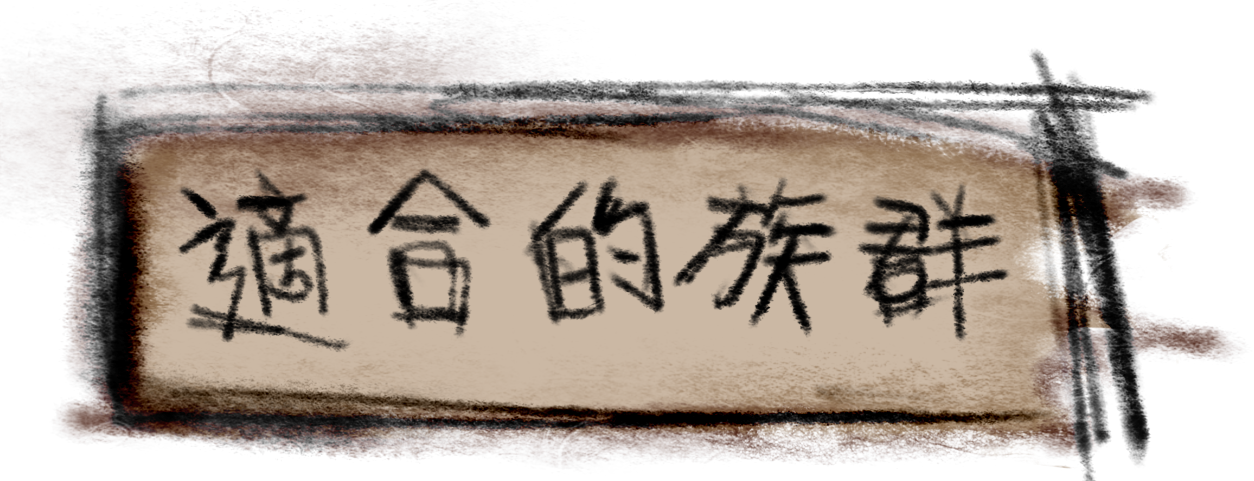 適合的族群